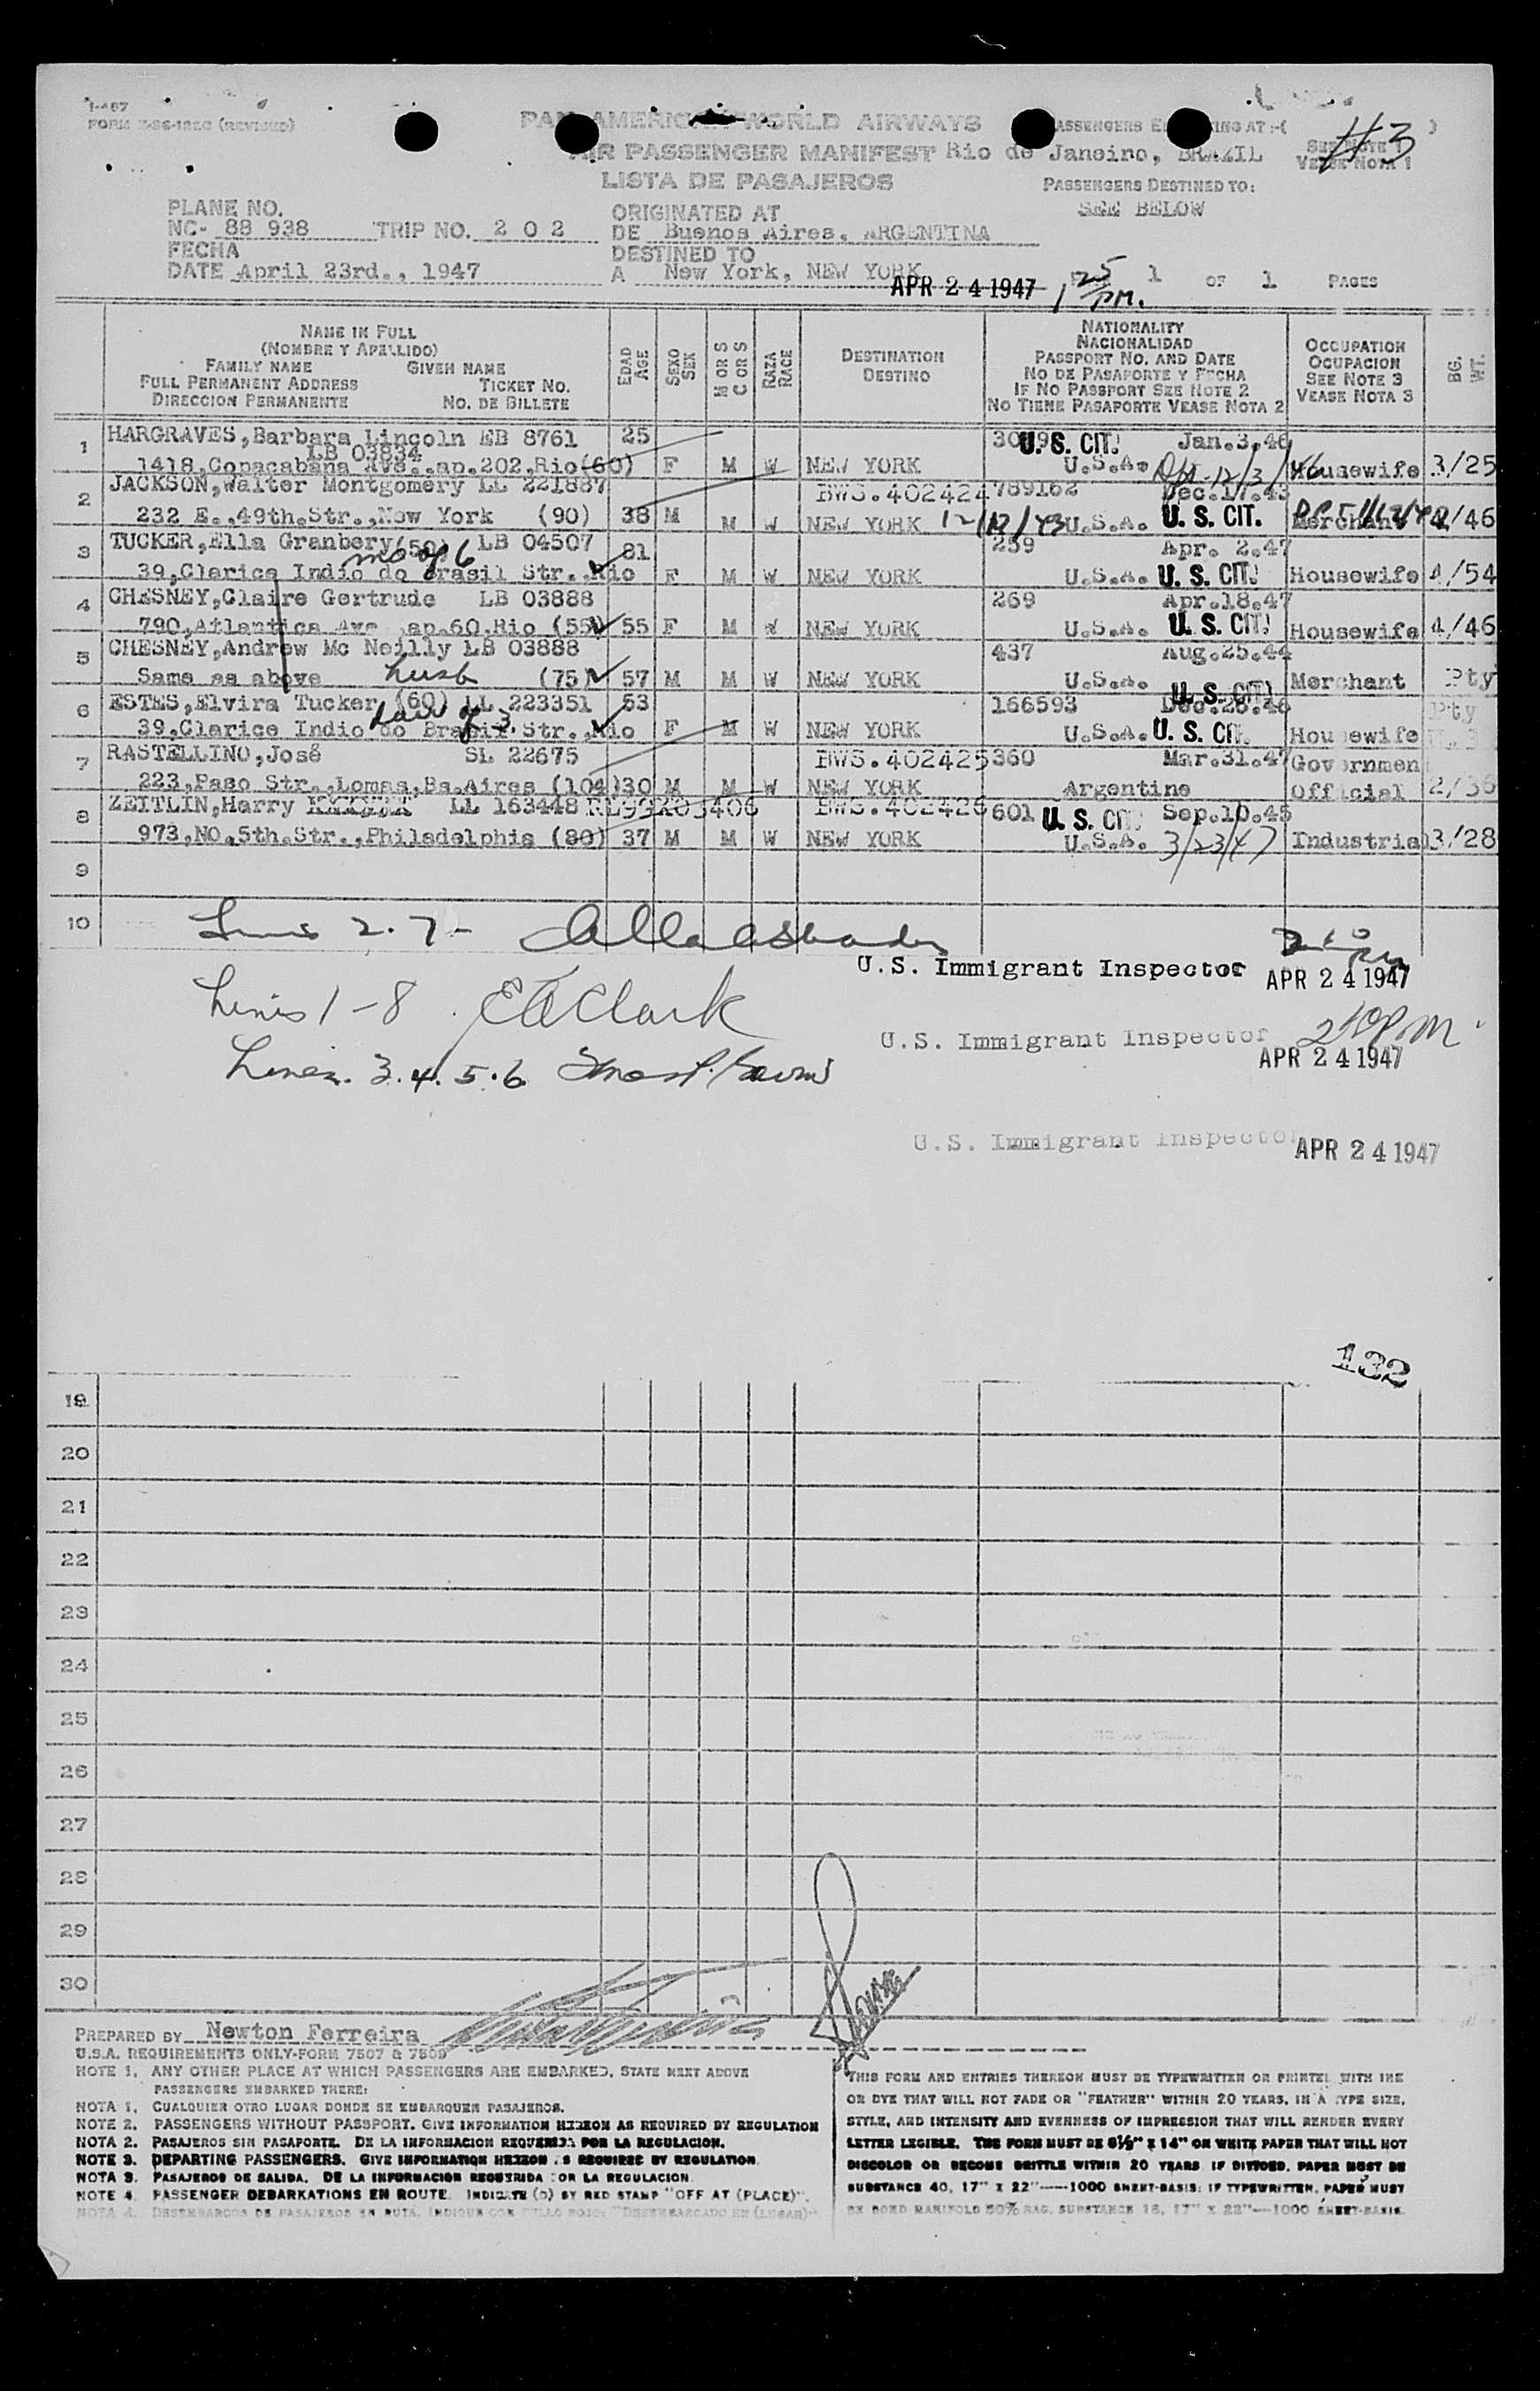 I-487
FORM (REVISED)
PAN AMERICAN WORLD AIRWAYS
AIR PASSENGER MANIFEST
LISTA DE PASAJEROS
PASSENGERS EMBARKING AT:-( )
Rio de Janeiro, BRAZIL
SEE NOTE 1
VEASE NOTA 1
#3
PASSENGERS DESTINED TO:
SEE BELOW
PLANE NO.
NC- 88 938 TRIP NO. 2 0 2
FECHA
DATE April 23rd., 1947
ORIGINATED AT
DE Buenos Aires, ARGENTINA
DESTINED TO
A New York, NEW YORK
APR 24 1947 1 25 PM.
1 OF 1 PAGES
NAME IN FULL
(NOMBRE Y APELLIDO)
FAMILY NAME GIVEN NAME
FULL PERMANENT ADDRESS TICKET NO.
DIRECCION PERMANENTE NO. DE BILLETE
EDAD AGE
SEXO SEX
M OR S C OR S
RAZA RACE
DESTINATION
DESTINO
NATIONALITY
NACIONALIDAD
PASSPORT NO. AND DATE
NO DE PASAPORTE Y FECHA
IF NO PASSPORT SEE NOTE 2
NO TIENE PASAPORTE VEASE NOTA 2
OCCUPATION
OCUPACION
SEE NOTE 3
VEASE NOTA 3
BG. WT.
1 HARGRAVES, Barbara Lincoln EB 8761 25 U.S. CIT. Jan.3,46
LB 03834
1418, Copacabana Ave., ap.202, Rio (60) F M W NEW YORK U.S.A. 12/3/46 Housewife 3/25
2 JACKSON, Walter Montgomery LL 221887 BWS.402424 789162 Dec.17.43
232 E.,49th.Str., New York (90) 38 M M W NEW YORK 12/17/43 U.S.A. U.S. CIT. Merchant 4/46
3 TUCKER, Ella Granbery (50) LB 04507 81 259 Apr. 2.47
mo of 6
39, Clarice Indio do Brasil Str., Rio F M W NEW YORK U.S.A. U.S. CIT. Housewife 4/54
4 CHESNEY, Claire Gertrude LB 03888 269 Apr.18.47
790, Atlantica Ave ap.60, Rio (55) 55 F M W NEW YORK U.S.A. U.S. CIT. Housewife 4/46
5 CHESNEY, Andrew Mc Neilly LB 03888 437 Aug.25.44
Same as above husb (75) 57 M M W NEW YORK U.S.A. U.S. CIT. Merchant Pty
6 ESTES, Elvira Tucker (60) LL 223351 53 166593 Dec.26.46 Pty
dau of 3.
39, Clarice Indio do Brasil Str., Rio F M W NEW YORK U.S.A. U.S. CIT. Housewife
7 RASTELLINO, José SL 22675 BWS.402425 360 Mar.31.47 Government
223, Paso Str., Lomas, Bs.Aires (104) 30 M M W NEW YORK Argentine Official 2/36
8 ZEITLIN, Harry LL 163448 BWS.402426 601 U.S. CIT. Sep.10.45
973, NO.5th.Str., Philadelphia (80) 37 M M W NEW YORK U.S.A. 3/23/47 Industrial 3/28
9
10
Lines 2.7-
U.S. Immigrant Inspector APR 24 1947
Lines 1-8. E A Clark
U.S. Immigrant Inspector 2 10 P.M. APR 24 1947
Lines. 3.4.5.6
U.S. Immigrant Inspector APR 24 1947
132
19
20
21
22
23
24
25
26
27
28
29
30
PREPARED BY Newton Ferreira
U.S.A. REQUIREMENTS ONLY-FORM 7507 & 7509
NOTE 1. ANY OTHER PLACE AT WHICH PASSENGERS ARE EMBARKED, STATE NEXT ABOVE
PASSENGERS EMBARKED THERE:
NOTA 1. CUALQUIER OTRO LUGAR DONDE SE EMBARQUEN PASAJEROS.
NOTE 2. PASSENGERS WITHOUT PASSPORT. GIVE INFORMATION HEREON AS REQUIRED BY REGULATION
NOTA 2. PASAJEROS SIN PASAPORTE. DE LA INFORMACION REQUERIDA POR LA REGULACION.
NOTE 3. DEPARTING PASSENGERS. GIVE INFORMATION HEREON AS REQUIRED BY REGULATION
NOTA 3. PASAJEROS DE SALIDA. DE LA INFORMACION REQUERIDA POR LA REGULACION
NOTE 4. PASSENGER DEBARKATIONS EN ROUTE. INDICATE (D) BY RED STAMP "OFF AT (PLACE)".
NOTA 4. DESEMBARCOS DE PASAJEROS EN RUTA. INDIQUE CON SELLO ROJO: "DESEMBARCADO EN (LUGAR)"
THIS FORM AND ENTRIES THEREON MUST BE TYPEWRITTEN OR PRINTED WITH INK
OR DYE THAT WILL NOT FADE OR "FEATHER" WITHIN 20 YEARS, IN A TYPE SIZE,
STYLE, AND INTENSITY AND EVENNESS OF IMPRESSION THAT WILL RENDER EVERY
LETTER LEGIBLE. THE FORM MUST BE 8½" X 14" ON WHITE PAPER THAT WILL NOT
DISCOLOR OR BECOME BRITTLE WITHIN 20 YEARS IF DITTOED. PAPER MUST BE
SUBSTANCE 40, 17" X 22"—1000 SHEET-BASIS; IF TYPEWRITTEN, PAPER MUST
BE BOND MANIFOLD 50% RAG, SUBSTANCE 16, 17" X 22"—1000 SHEET-BASIS.